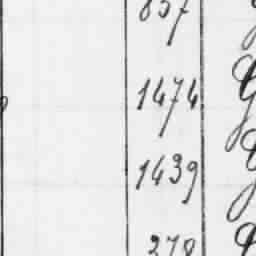 857
1474
1439
278